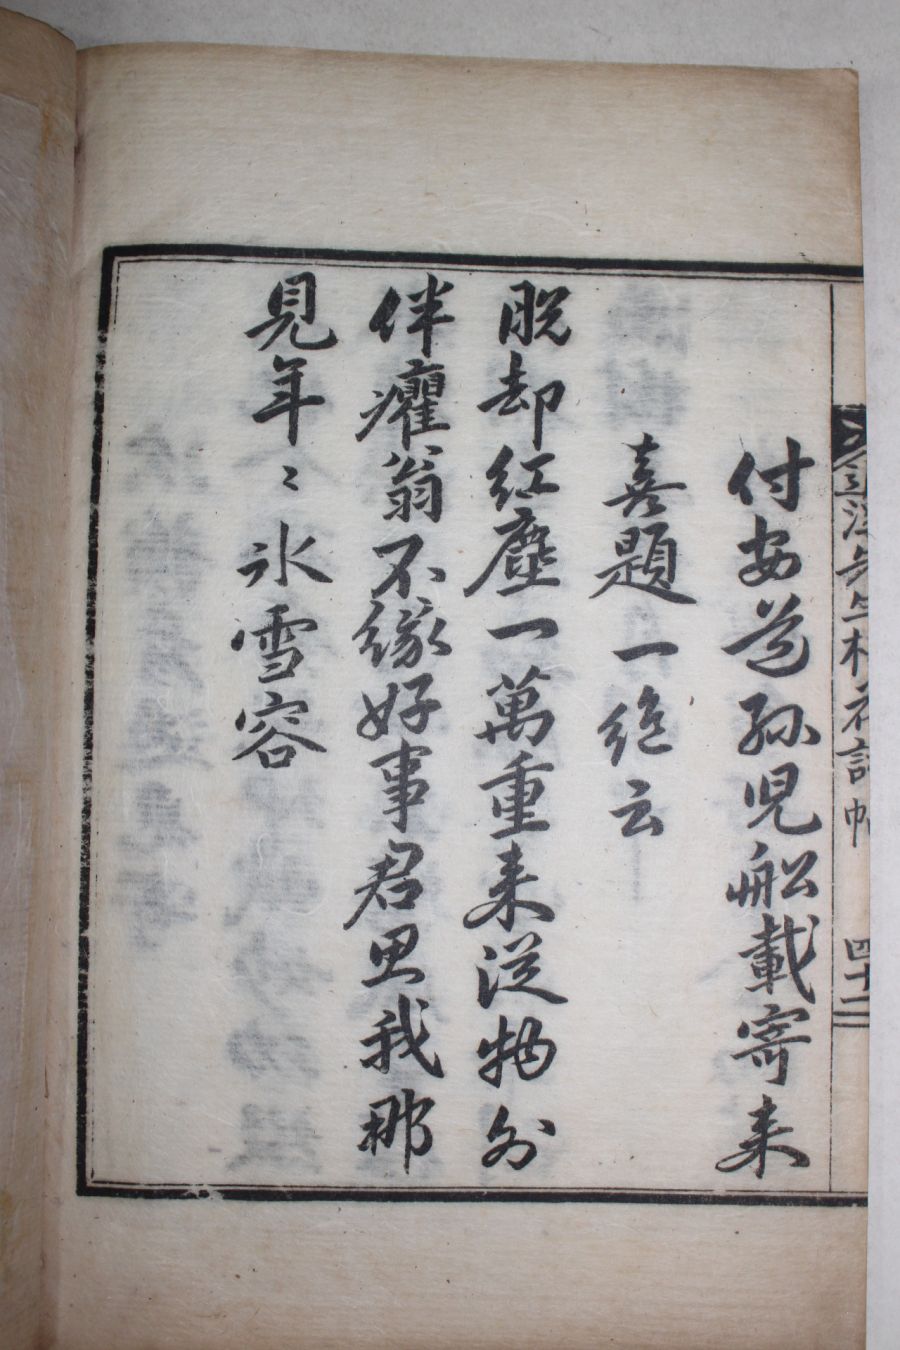 付安道孫兒船載寄来
喜題一絶云
脫却紅塵一萬重来從物外
伴癯翁不緣好事君思我那
見年〻氷雪容
先生梅花詩帖
四十二